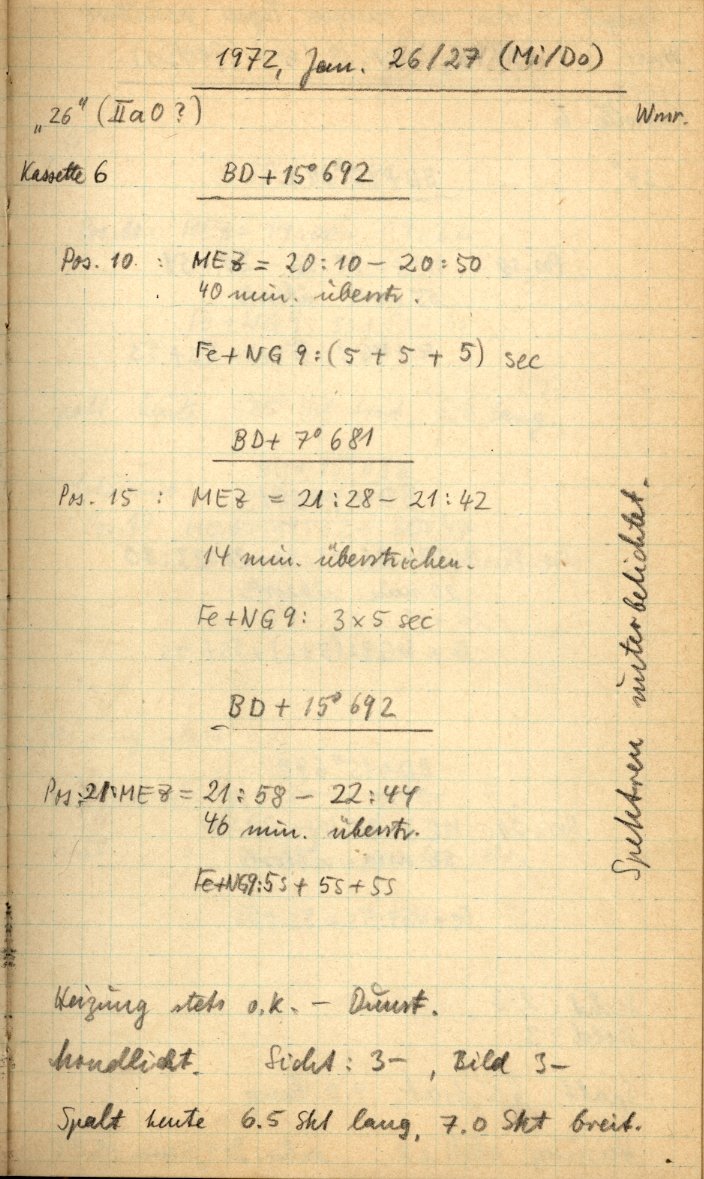 1972, Jan. 26/27 (Mi/Do)
„26" (IIaO?) Wmr.
Kassette 6 BD+15° 692
Pos. 10 : MEZ = 20:10 – 20:50
40 min. überstr.
Fe+NG 9:(5 + 5 + 5) sec
BD+ 7° 681
Pos. 15 : MEZ = 21:28 – 21:42
14 min. überstrichen.
Fe+NG9: 3x5 sec
BD + 15° 692
Pos. 21: MEZ = 21:58 – 22:44
46 min. überstr.
Fe+NG9:5s + 5s + 5s
Spektren unterbelichtet.
Heizung stets o.k. – Dunst.
Mondlicht. Sicht: 3– , Bild 3–
Spalt heute 6.5 Skt lang, 7.0 Skt breit.